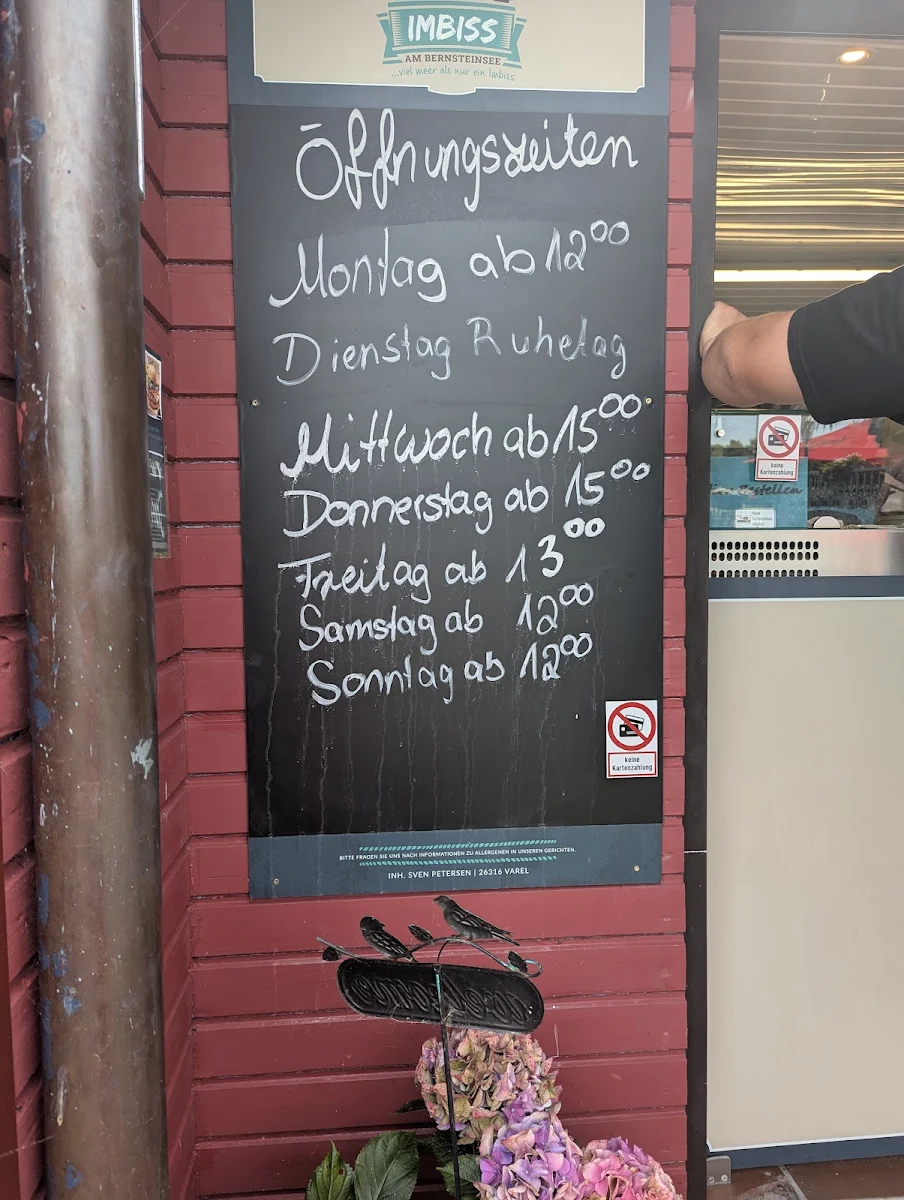 IMBISS
AM BERNSTEINSEE
...viel meer als nur ein Imbiss
Öffnungszeiten
Montag ab 12⁰⁰
Dienstag Ruhetag
Mittwoch ab 15⁰⁰
Donnerstag ab 15⁰⁰
Freitag ab 13⁰⁰
Samstag ab 12⁰⁰
Sonntag ab 12⁰⁰
keine
Kartenzahlung
BITTE FRAGEN SIE UNS NACH INFORMATIONEN ZU ALLERGENEN IN UNSEREN GERICHTEN.
INH. SVEN PETERSEN | 26316 VAREL
keine
Kartenzahlung